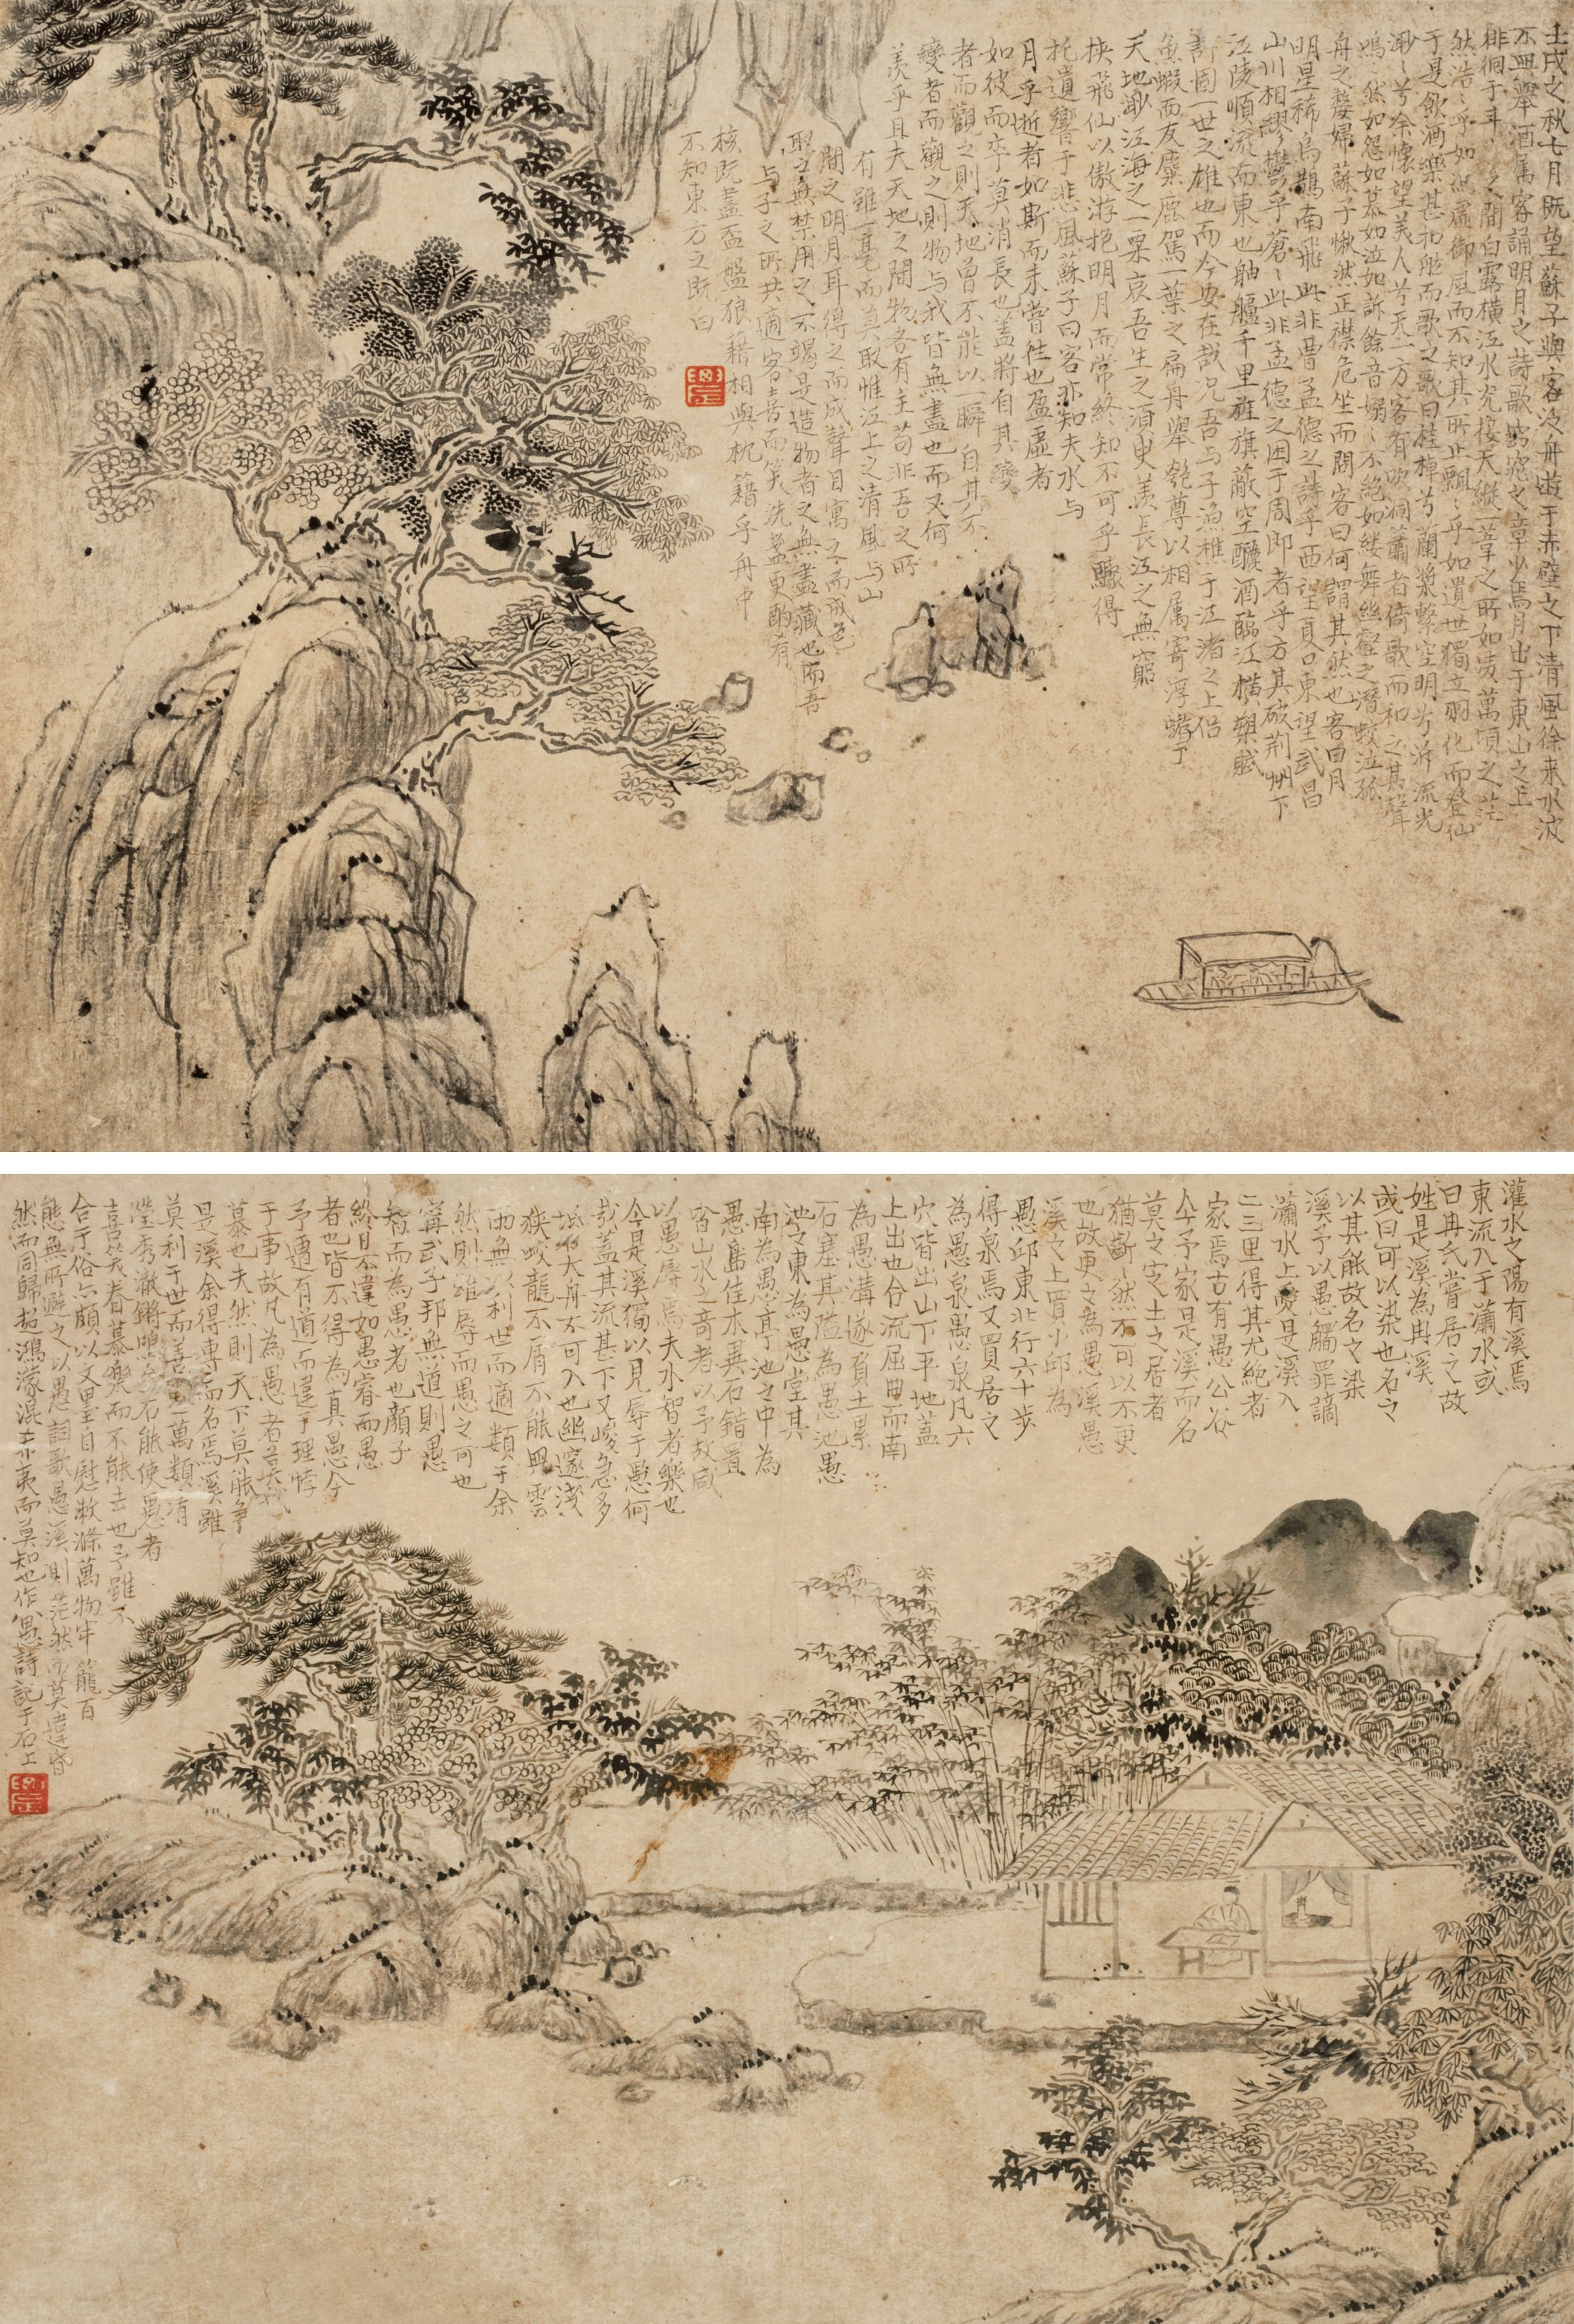 壬戌之秋七月既望蘇子與客泛舟遊于赤壁之下清風徐来水波
不興舉酒属客誦明月之詩歌窈窕之章少焉月出于東山之上
徘徊于斗之間白露横江水光接天縱一葦之所如凌萬頃之茫
然浩〻乎如馮虛御風而不知其所止飄〻乎如遺世獨立羽化而登仙
于是飲酒樂甚扣舷而歌之歌曰桂棹兮蘭槳擊空明兮泝流光
渺〻兮余懷望美人兮天一方客有吹洞簫者倚歌而和之其聲
嗚〻然如怨如慕如泣如訴餘音嫋〻不絶如縷舞幽壑之潛蛟泣孤
舟之嫠婦蘇子愀然正襟危坐而問客曰何謂其然也客曰月
明星稀烏鵲南飛此非曹孟德之詩乎西望夏口東望武昌
山川相繆鬱乎蒼〻此非孟德之困于周郎者乎方其破荆州下
江陵順流而東也舳艫千里旌旗蔽空釃酒臨江横槊賦
詩固一世之雄也而今安在哉况吾与子漁樵于江渚之上侣
魚蝦而友麋鹿駕一葉之扁舟舉匏尊以相属寄浮蝣于
天地渺江海之一粟哀吾生之須臾羨長江之無窮
挟飛仙以傲游抱明月而常終知不可乎驟得
托遺響于悲風蘇子曰客亦知夫水与
月乎逝者如斯而未嘗往也盈虛者
如彼而卒莫消長也蓋將自其變
者而觀之則天地曾不能以一瞬自其不
變者而觀之則物与我皆無盡也而又何
羨乎且夫天地之間物各有主苟非吾之所
有雖一毫而莫取惟江上之清風与山
間之明月耳得之而成聲目寓之而成色
取之無禁用之不竭是造物者之無盡藏也而吾
与子之所共適客喜而笑洗盞更酌肴
核既盡盃盤狼藉相與枕籍乎舟中
不知東方之既白
灌水之陽有溪焉
東流入于瀟水或
曰冉氏嘗居之故
姓是溪為冉溪
或曰可以染也名之
以其能故名之染
溪予以愚觸罪謫
瀟水上愛是溪入
二三里得其尤絶者
家焉古有愚公谷
今予家是溪而名
莫之定土之居者
猶齗〻然不可以不更
也故更之為愚溪愚
溪之上買小邱為
愚邱東北行六十步
得泉焉又買居之
為愚泉愚泉凡六
穴皆出山下平地蓋
上出也合流屈曲而南
為愚溝遂負土累
石塞其隘為愚池愚
池之東為愚堂其
南為愚亭池之中為
愚島佳木異石錯置
皆山水之奇者以予故咸
以愚辱焉夫水智者樂也
今是溪獨以見辱于愚何
哉蓋其流甚下又峻急多
坻石大舟不可入也幽邃淺
狹蛟龍不屑不能興雲
雨無以利世而適類于余
然則雖辱而愚之可也
甯武子邦無道則愚
智而為愚者也顏子
終日不違如愚睿而愚
者也皆不得為真愚今
予遭有道而違于理悖
于事故凡為愚者莫我
慕也夫然則天下莫能争
是溪余得專而名焉溪雖
莫利于世而善鑒萬類清
瑩秀澈鏘鳴金石能使愚者
喜笑眷慕樂而不能去也予雖不
合于俗亦頗以文墨自慰漱滌萬物牢籠百
態無所避之以愚詞歌愚溪則茫然而莫違昏
然而同歸超鴻濛混希夷而莫知也作八愚詩記于石上